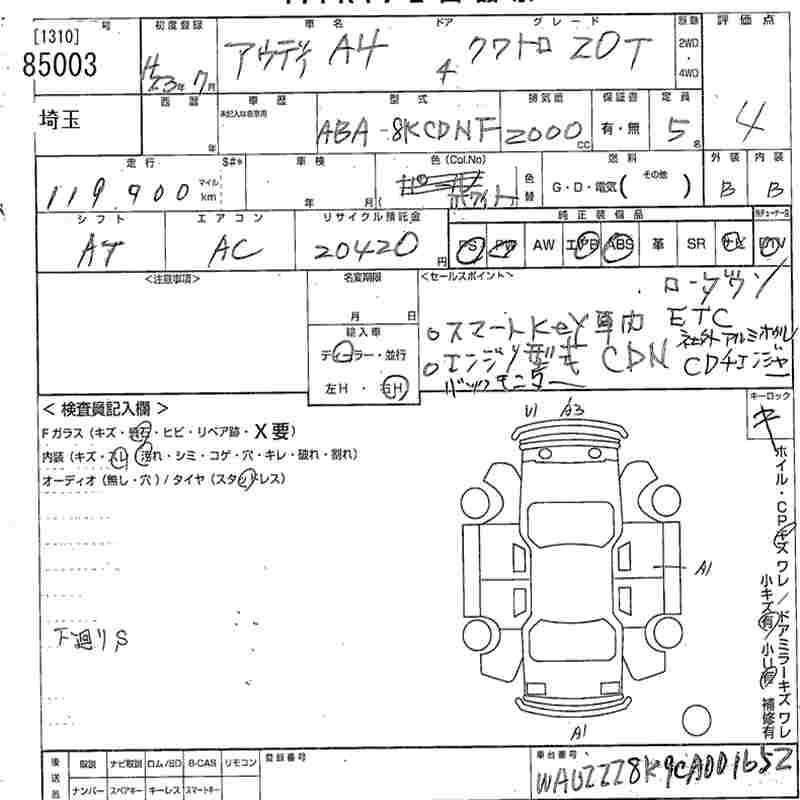 [1310] 号
85003
埼玉
初度登録
H23年7月
車名
アウディ A4
ドア
4
グレード
クワトロ 2.0T
2WD
・
4WD
評価点
4
西暦
年
車歴
未記入は自家用
型式
ABA-8KCDNF
排気量
2000cc
保証書
有・無
定員
5名
走行
119,900
マイル
km
S#*
車検
年 月(
色(Col.No)
パール
ホワイト
色替
燃料
G・D・電気( その他 )
外装
B
内装
B
シフト
AT
エアコン
AC
リサイクル預託金
20420円
純正装備品
PS PW AW エアB ABS 革 SR ナビ
DTV
<注意事項>
名変期限
月 日
輸入車
ディーラー・並行
左H・右H
<セールスポイント>
ローダウン
○スマートKey車内 ETC
社外アルミホイル
○エンジン CDN CDチェンジャー
バックモニター
<検査員記入欄>
Fガラス(キズ・飛石・ヒビ・リペア跡・X要)
内装(キズ・スレ・汚れ・シミ・コゲ・穴・キレ・破れ・割れ)
オーディオ(無し・穴)/タイヤ(スタッドレス)
下廻りS
U1 A3
A1
A1
キーロック
キ
ホイル・CPキズワレ/ドアミラーキズワレ
小キズ有/小U有 補修有
後送品
取説 ナビ取説 ロム/SD B-CAS リモコン
ナンバー スペアキー キーレス スマートキー
登録番号
車台番号
WAUZZZ8K9CA001652